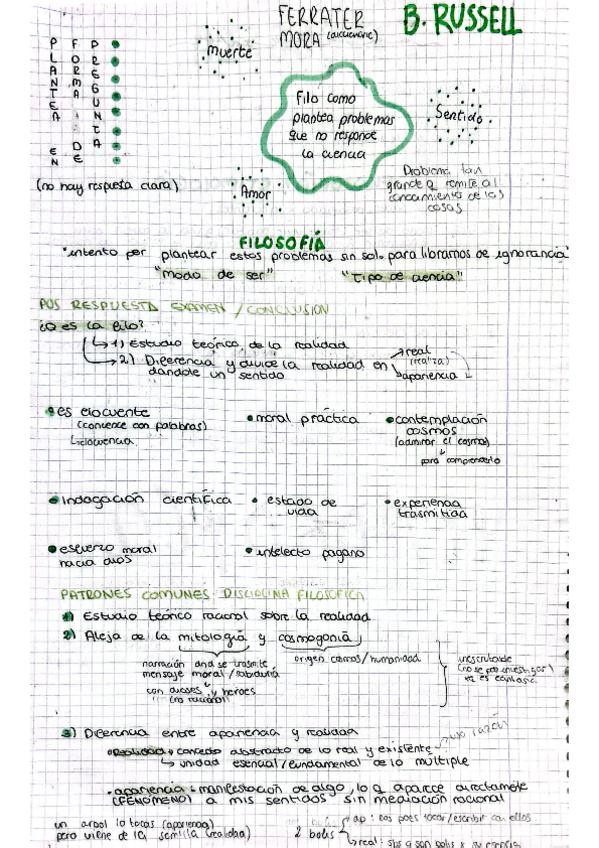 FERRATER
MORA (diccionario)
B. RUSSELL
PLANTEA EN
FORMA DE
PREGUNTA
muerte
Filo como
plantea problemas
que no responde
la ciencia
Sentido
Amor
(no hay respuesta clara)
Problema tan
grande q remite al
de las
cosas
FILOSOFÍA
"intento per plantear estos problemas sin solo para librarnos de ignorancia"
"modo de ser" "tipo de ciencia"
POS RESPUESTA EXAMEN / CONCLUSION
¿Q es la filo?
1) Estudio teórico de la realidad
2) Diferencia y divide la realidad en
dandole un sentido
real
apariencia
es elocuente
(convence con palabras)
elocuencia
moral práctica
contemplación
cosmos
(admirar el cosmos)
para comprenderlo
Indagación científica
estado de
vida
experiencia
trasmitida
esfuerzo moral
hacia dios
intelecto pagano
PATRONES COMUNES DISCIPLINA FILOSOFICA
1) Estudio teórico racional sobre la realidad
2) Aleja de la mitología y cosmogonía
narración and se trasmite
mensaje moral / sabiduría
con dioses y heroes
(no racional)
origen cosmos/humanidad
inescrutable
(no se pue investigar)
xq es
3) Diferencia entre apariencia y realidad
Realidad → concepto abstracto de lo real y existente → uso razón
unidad esencial/fundamental de lo multiple
apariencia: manifestación de algo, lo q aparece directamente
(FENOMENO) a mis sentidos sin mediación racional
un arbol lo tocas (apariencia)
pero viene de la semilla (realidad)
2 bolis
ap: los pots tocar/escribir con ellos
real: sbs q son bolis x su